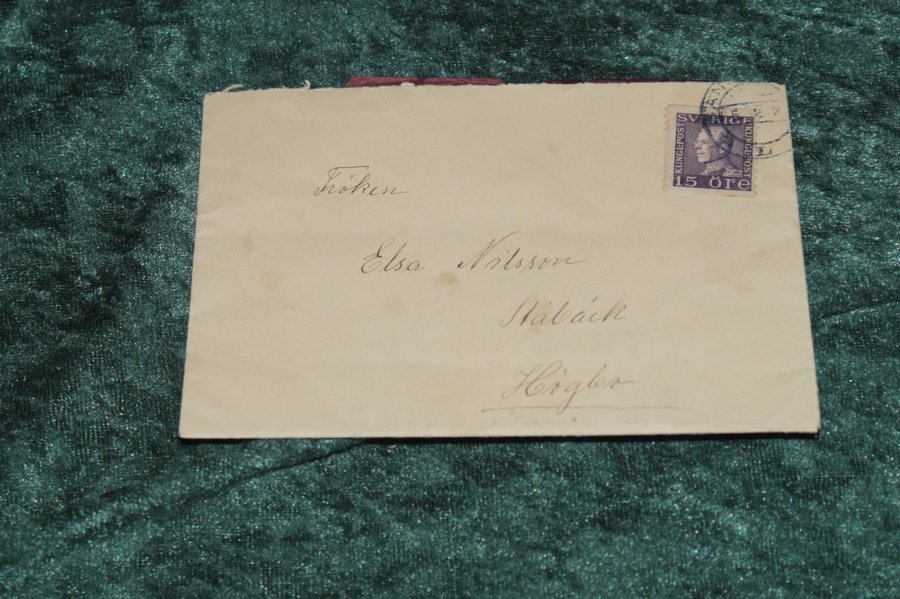 SVERIGE
KUNGL:POST
KUNGL:POST
15 ÖRE
Fröken
Elsa Nilsson
Stabäck
Högbo